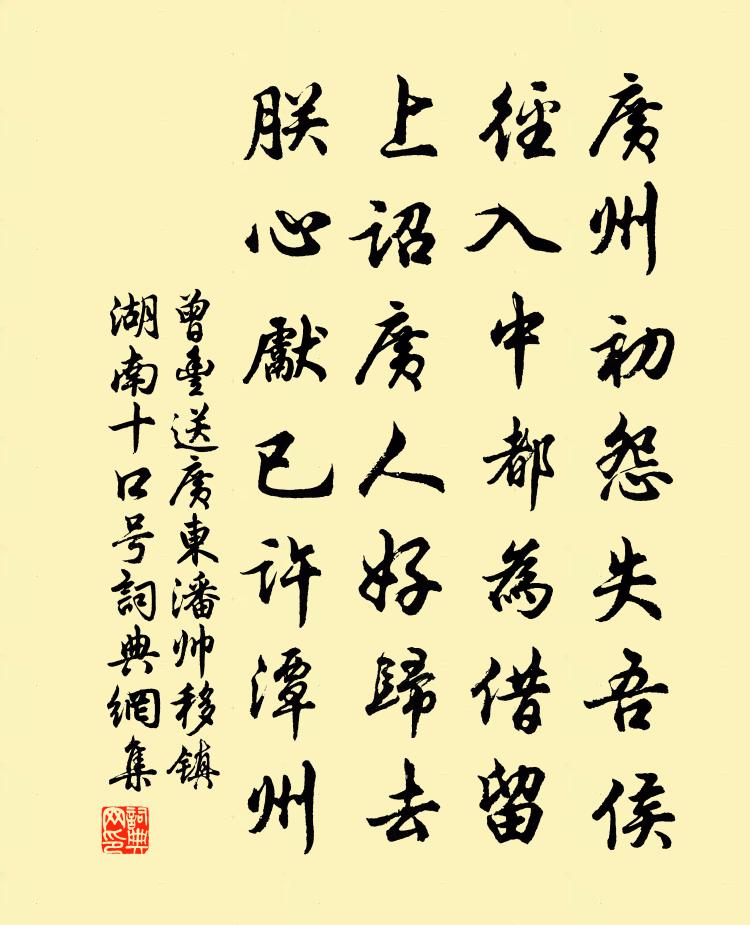 廣州初怨失吾侯
徑入中都為借留
上詔廣人好歸去
朕心獻已許潭州
曾豐送廣東潘帅移镇
湖南十口号詞典網集
詞典網印